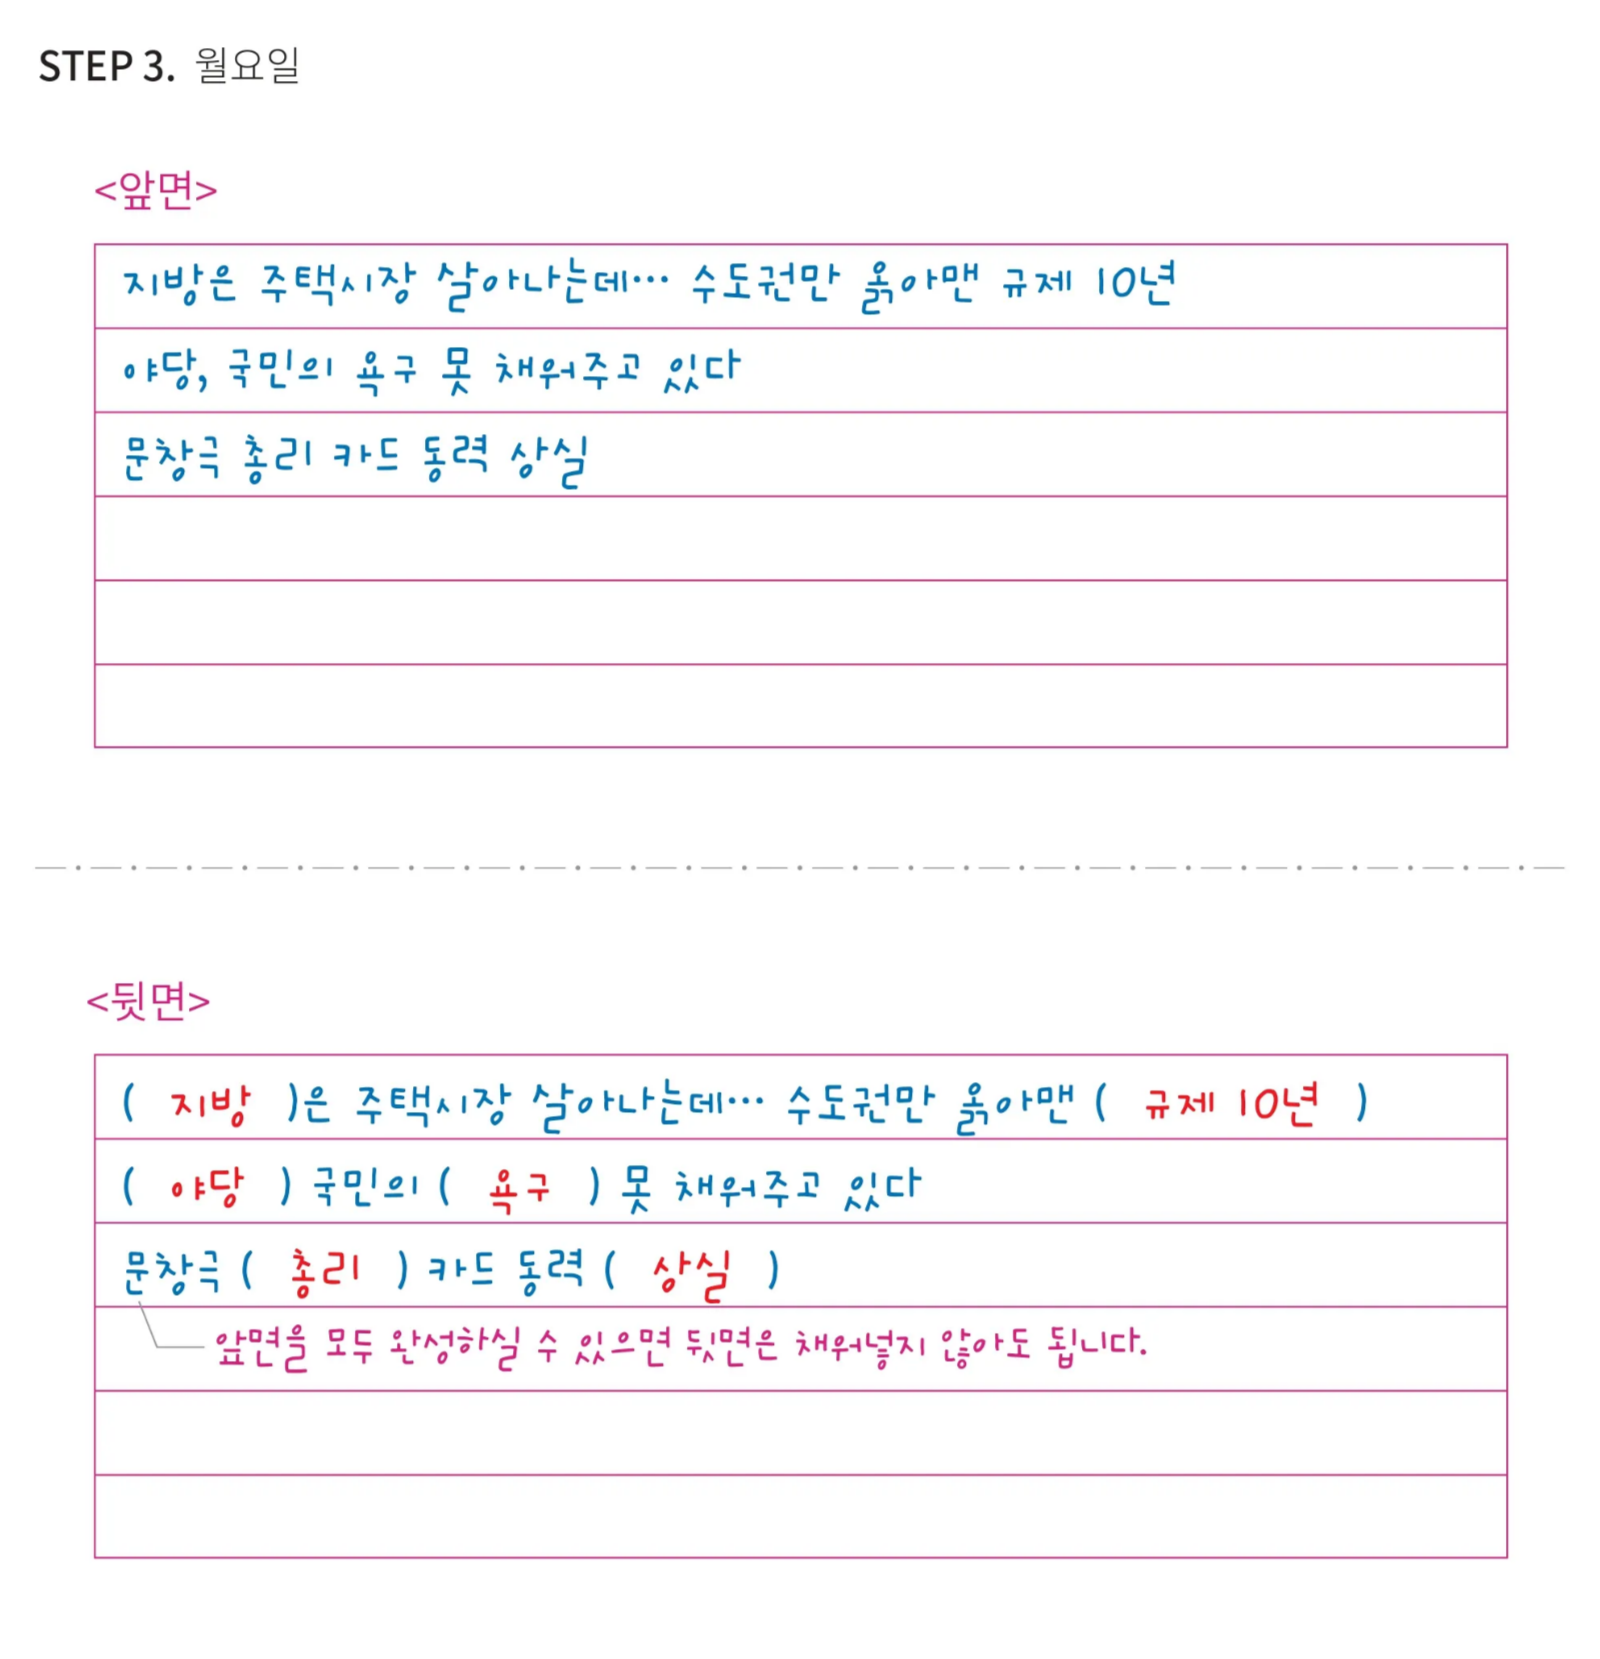 STEP 3. 월요일
<앞면>
지방은 주택시장 살아나는데… 수도권만 옭아맨 규제 10년
야당, 국민의 욕구 못 채워주고 있다
문창극 총리 카드 동력 상실
<뒷면>
( 지방 )은 주택시장 살아나는데… 수도권만 옭아맨 ( 규제 10년 )
( 야당 ) 국민의 ( 욕구 ) 못 채워주고 있다
문창극 ( 총리 ) 카드 동력 ( 상실 )
앞면을 모두 완성하실 수 있으면 뒷면은 채워넣지 않아도 됩니다.